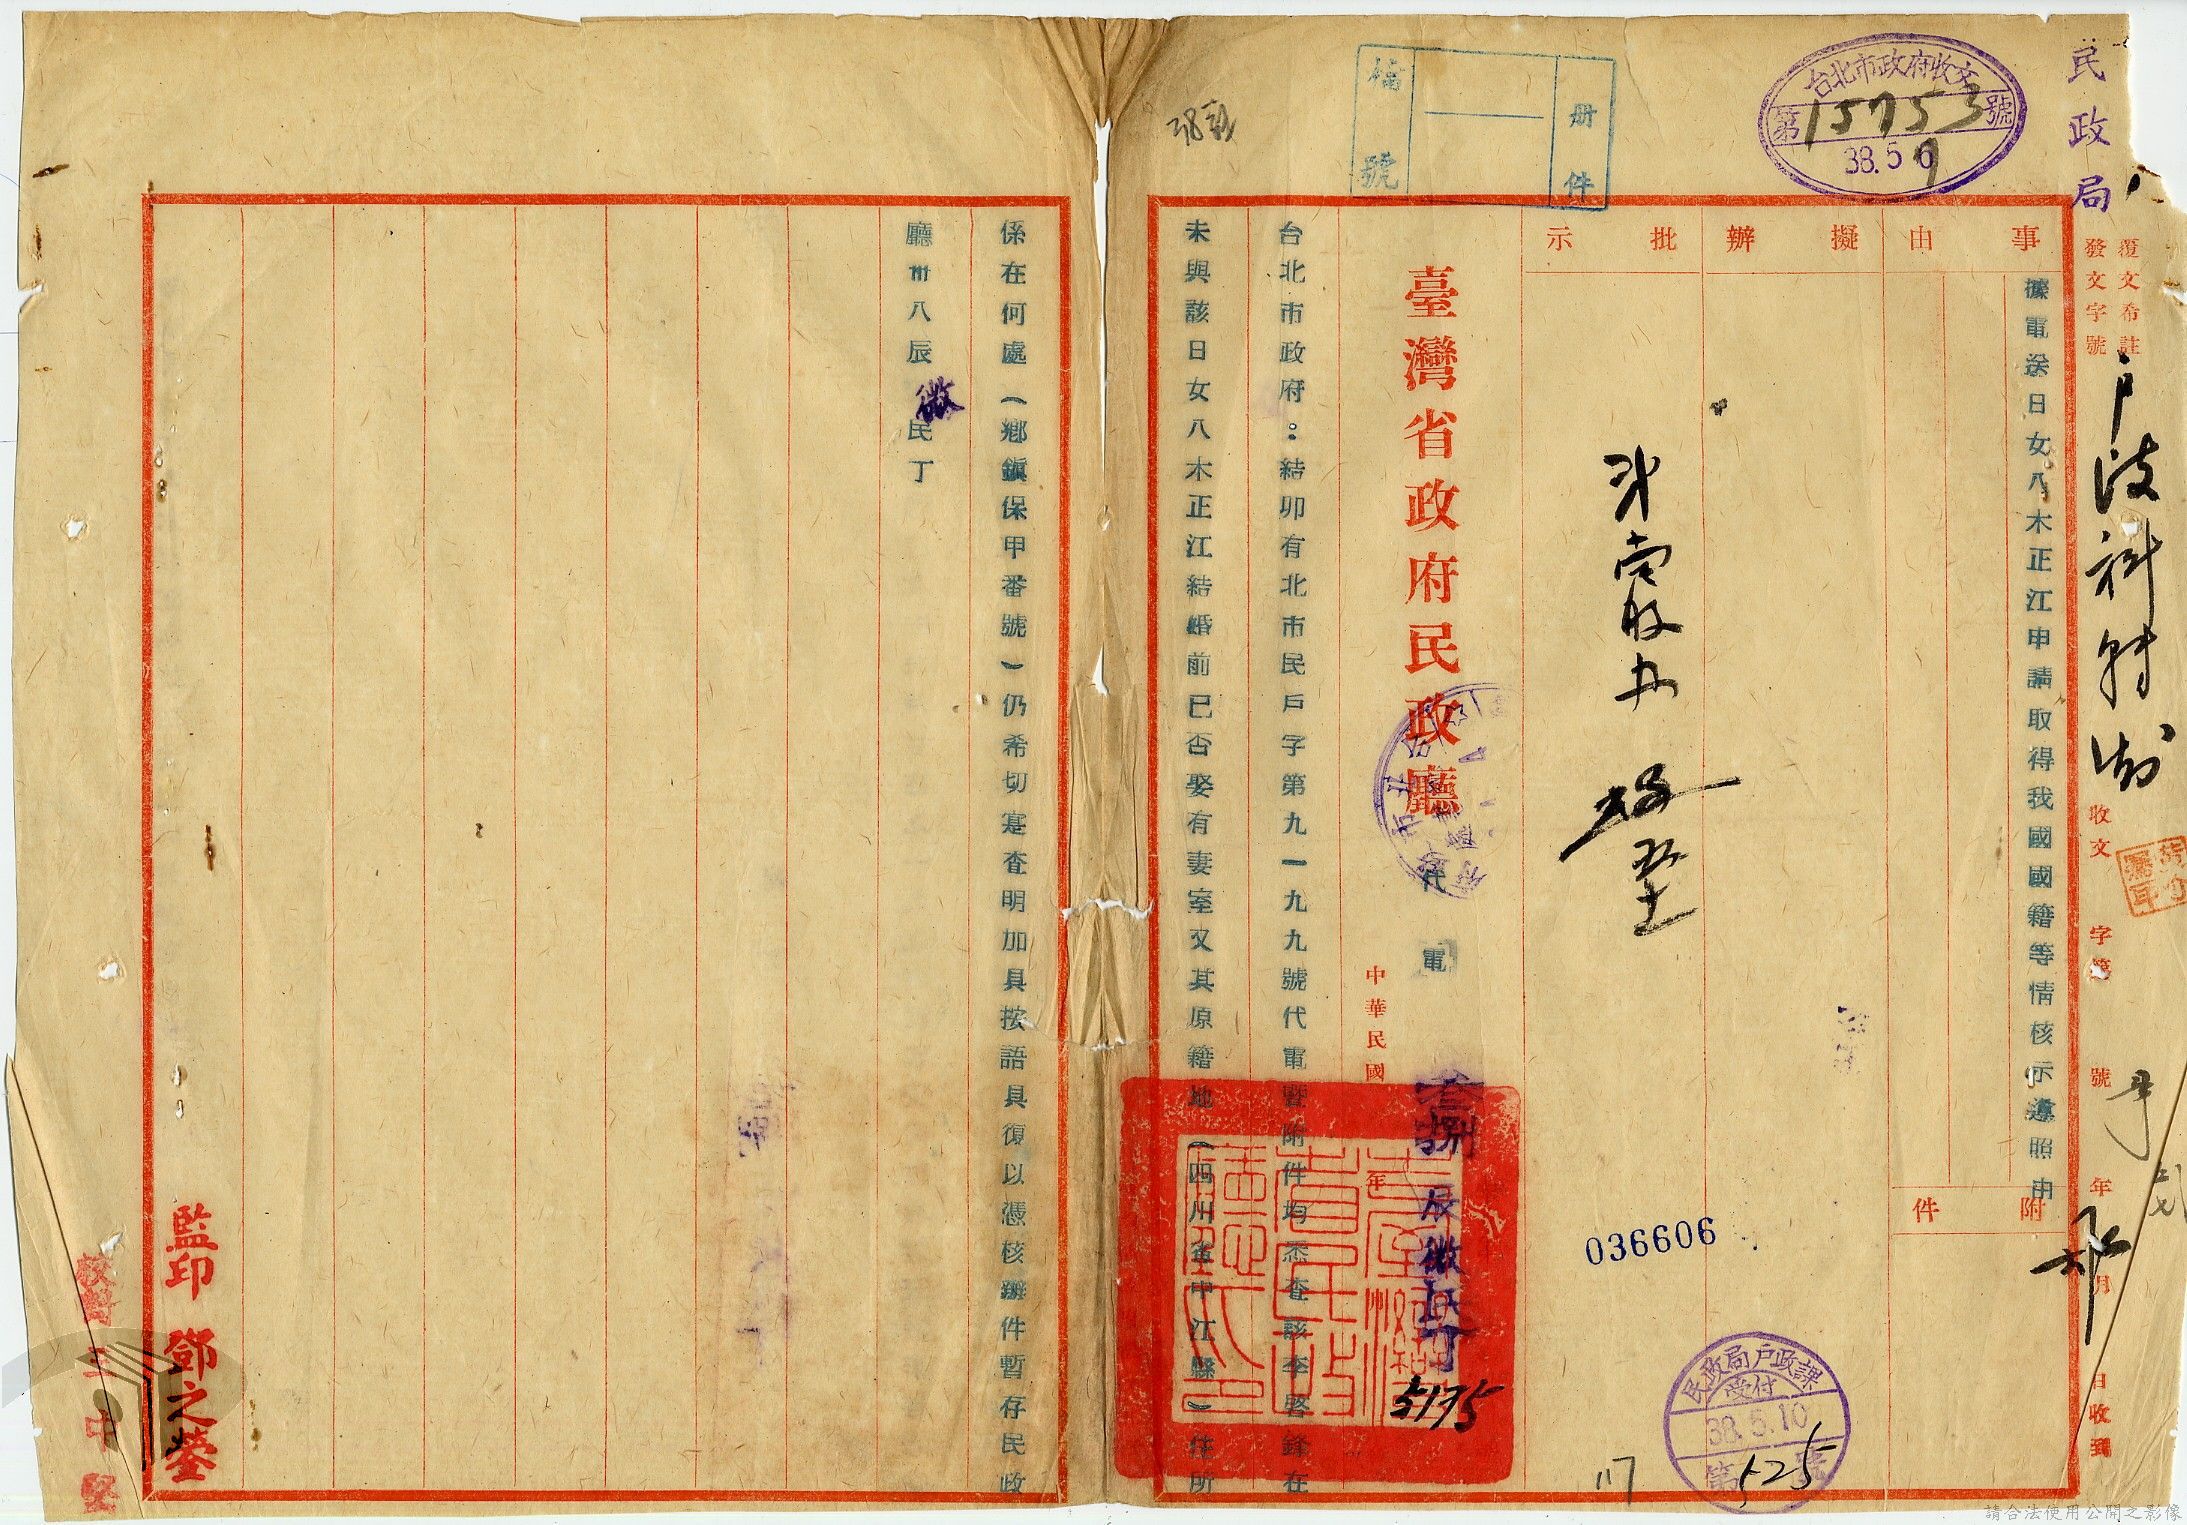 民政局
台北市政府收文
第15753號
38.5.6
覆文希註
發文字號
收文 字第 號 年 月 日收到
事由
據電送日女八木正江申請取得我國國籍等情核示遵照由
附件
擬辦
批示
036606
民政局戶政課
受付
38.5.10
第525號
117
臺灣省政府民政廳
代電
中華民國 年
叁捌 辰微民丁
5175
台北市政府：結卯有北市民戶字第九一一九九號代電暨附件均悉查該李啓鋒在
未與該日女八木正江結婚前已否娶有妻室又其原籍地（四川省中江縣）住所
係在何處（鄉鎭保甲番號）仍希切寔查明加具按語具復以憑核辦件暫存民政
廳卅八辰微民丁
册件
檔號
監印 鄧之鎣
校對 王中堅
請合法使用公開之影像